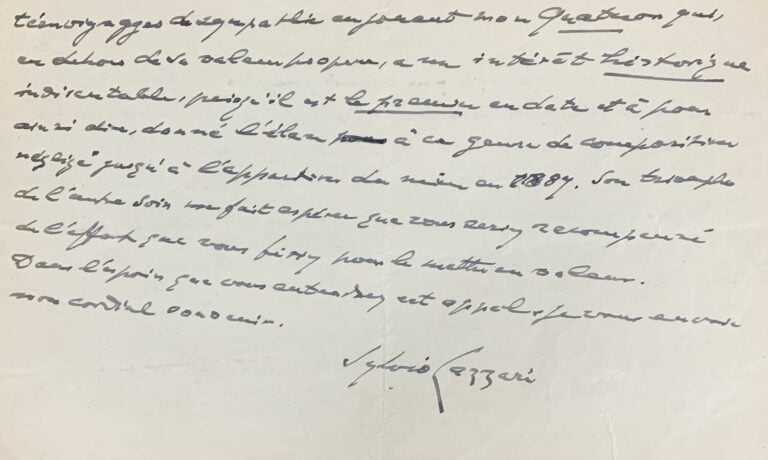 témoignages de sympathie en jouant mon Quatuor qui,
en dehors de sa valeur propre, a un intérêt historique
indiscutable, puisqu'il est le premier en date et a pour
ainsi dire, donné l'élan à ce genre de composition
négligé jusqu'à l'apparition du mien en 1887. Son triomphe
de l'autre soir me fait espérer que vous serez récompensé
de l'effort que vous fîtes pour le mettre en valeur.
Dans l'espoir que vous entendrez cet appel, je vous envoie
mon cordial souvenir.
Sylvio Lazzari